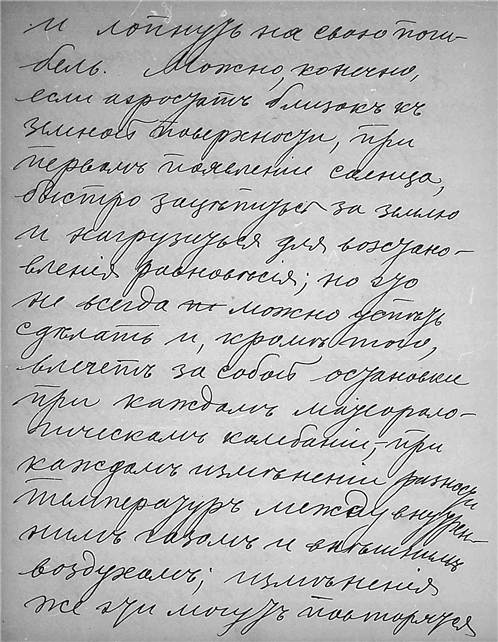 и лопнуть на свою поги-
бель. Можно, конечно,
если аэростатъ близокъ къ
земной поверхности, при
первомъ появленіи солнца,
быстро зацѣпиться за землю
и нагрузиться для возстано-
вленія равновѣсія; но это
не всегда можно успѣть
сдѣлать и, кромѣ того,
влечетъ за собой остановки
при каждомъ матеороло-
гическомъ колебаніи, при
каждомъ измѣненіи разности
температуръ между внутрен-
нимъ газомъ и внѣшнимъ
воздухомъ; измѣненія
же эти могутъ повторяться